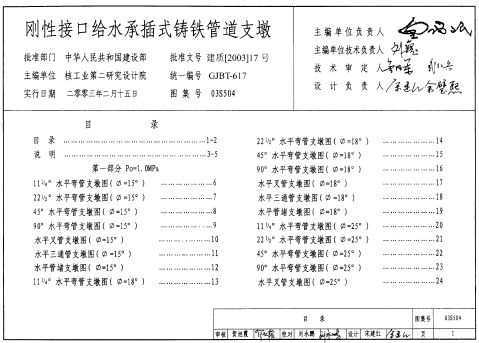 刚性接口给水承插式铸铁管道支墩
批准部门 中华人民共和国建设部 批准文号 建质[2003]17号
主编单位 核工业第二研究设计院 统一编号 GJBT-617
实行日期 二〇〇三年二月十五日 图集号 03S504
主编单位负责人
主编单位技术负责人
技术审定人
设计负责人
目 录
目 录 1-2
说 明 3-5
第一部分 Po=1.0MPa
11¼° 水平弯管支墩图(Ø=15°) 6
22½° 水平弯管支墩图(Ø=15°) 7
45° 水平弯管支墩图(Ø=15°) 8
90° 水平弯管支墩图(Ø=15°) 9
水平叉管支墩图(Ø=15°) 10
水平三通支墩图(Ø=15°) 11
水平管堵支墩图(Ø=15°) 12
11¼° 水平弯管支墩图(Ø=18°) 13
22½° 水平弯管支墩图(Ø=18°) 14
45° 水平弯管支墩图(Ø=18°) 15
90° 水平弯管支墩图(Ø=18°) 16
水平叉管支墩图(Ø=18°) 17
水平三通支墩图(Ø=18°) 18
水平管堵支墩图(Ø=18°) 19
11¼° 水平弯管支墩图(Ø=25°) 20
22½° 水平弯管支墩图(Ø=25°) 21
45° 水平弯管支墩图(Ø=25°) 22
90° 水平弯管支墩图(Ø=25°) 23
水平叉管支墩图(Ø=25°) 24
目 录 图集号 03S504
审核 校对 刘永鹏 设计 宋建红 页 1